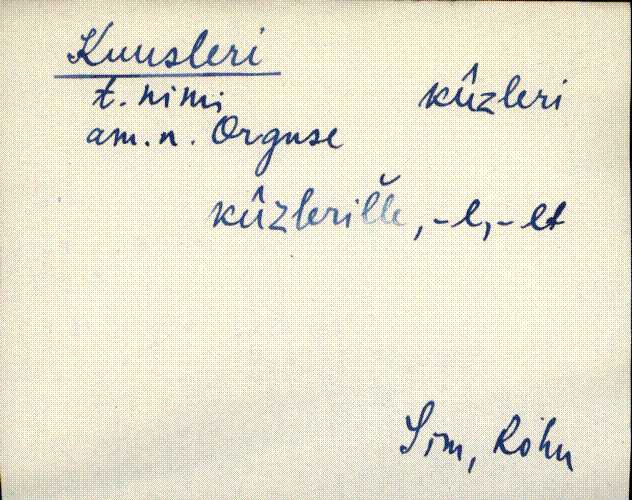 Kuusleri
t. nimi kûzleri
am. n. Orguse
kûzlerille, -l, -lt
Sim, Rohu